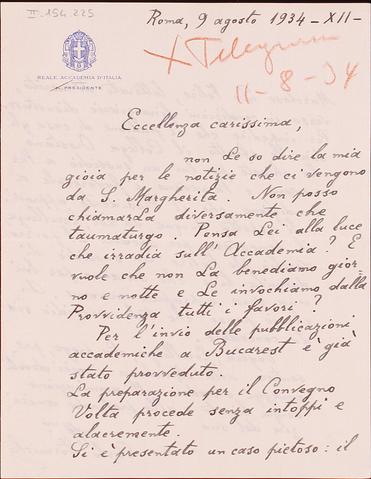 II.154.225
Roma, 9 agosto 1934 - XII -
X Telegramma
11-8-34
REALE ACCADEMIA D'ITALIA
IL PRESIDENTE
Eccellenza carissima,
non Le so dire la mia
gioia per le notizie che ci vengono
da S. Margherita. Non posso
chiamarLa diversamente che
taumaturgo. Pensa Lei alla luce
che irradia sull'Accademia? E
vuole che non La benediamo gior-
no e notte e Le invochiamo dalla
Provvidenza tutti i favori?
Per l'invio delle pubblicazioni
accademiche a Bucarest è già
stato provveduto.
La preparazione per il Convegno
Volta procede senza intoppi e
alacremente.
Si è presentato un caso pietoso: il